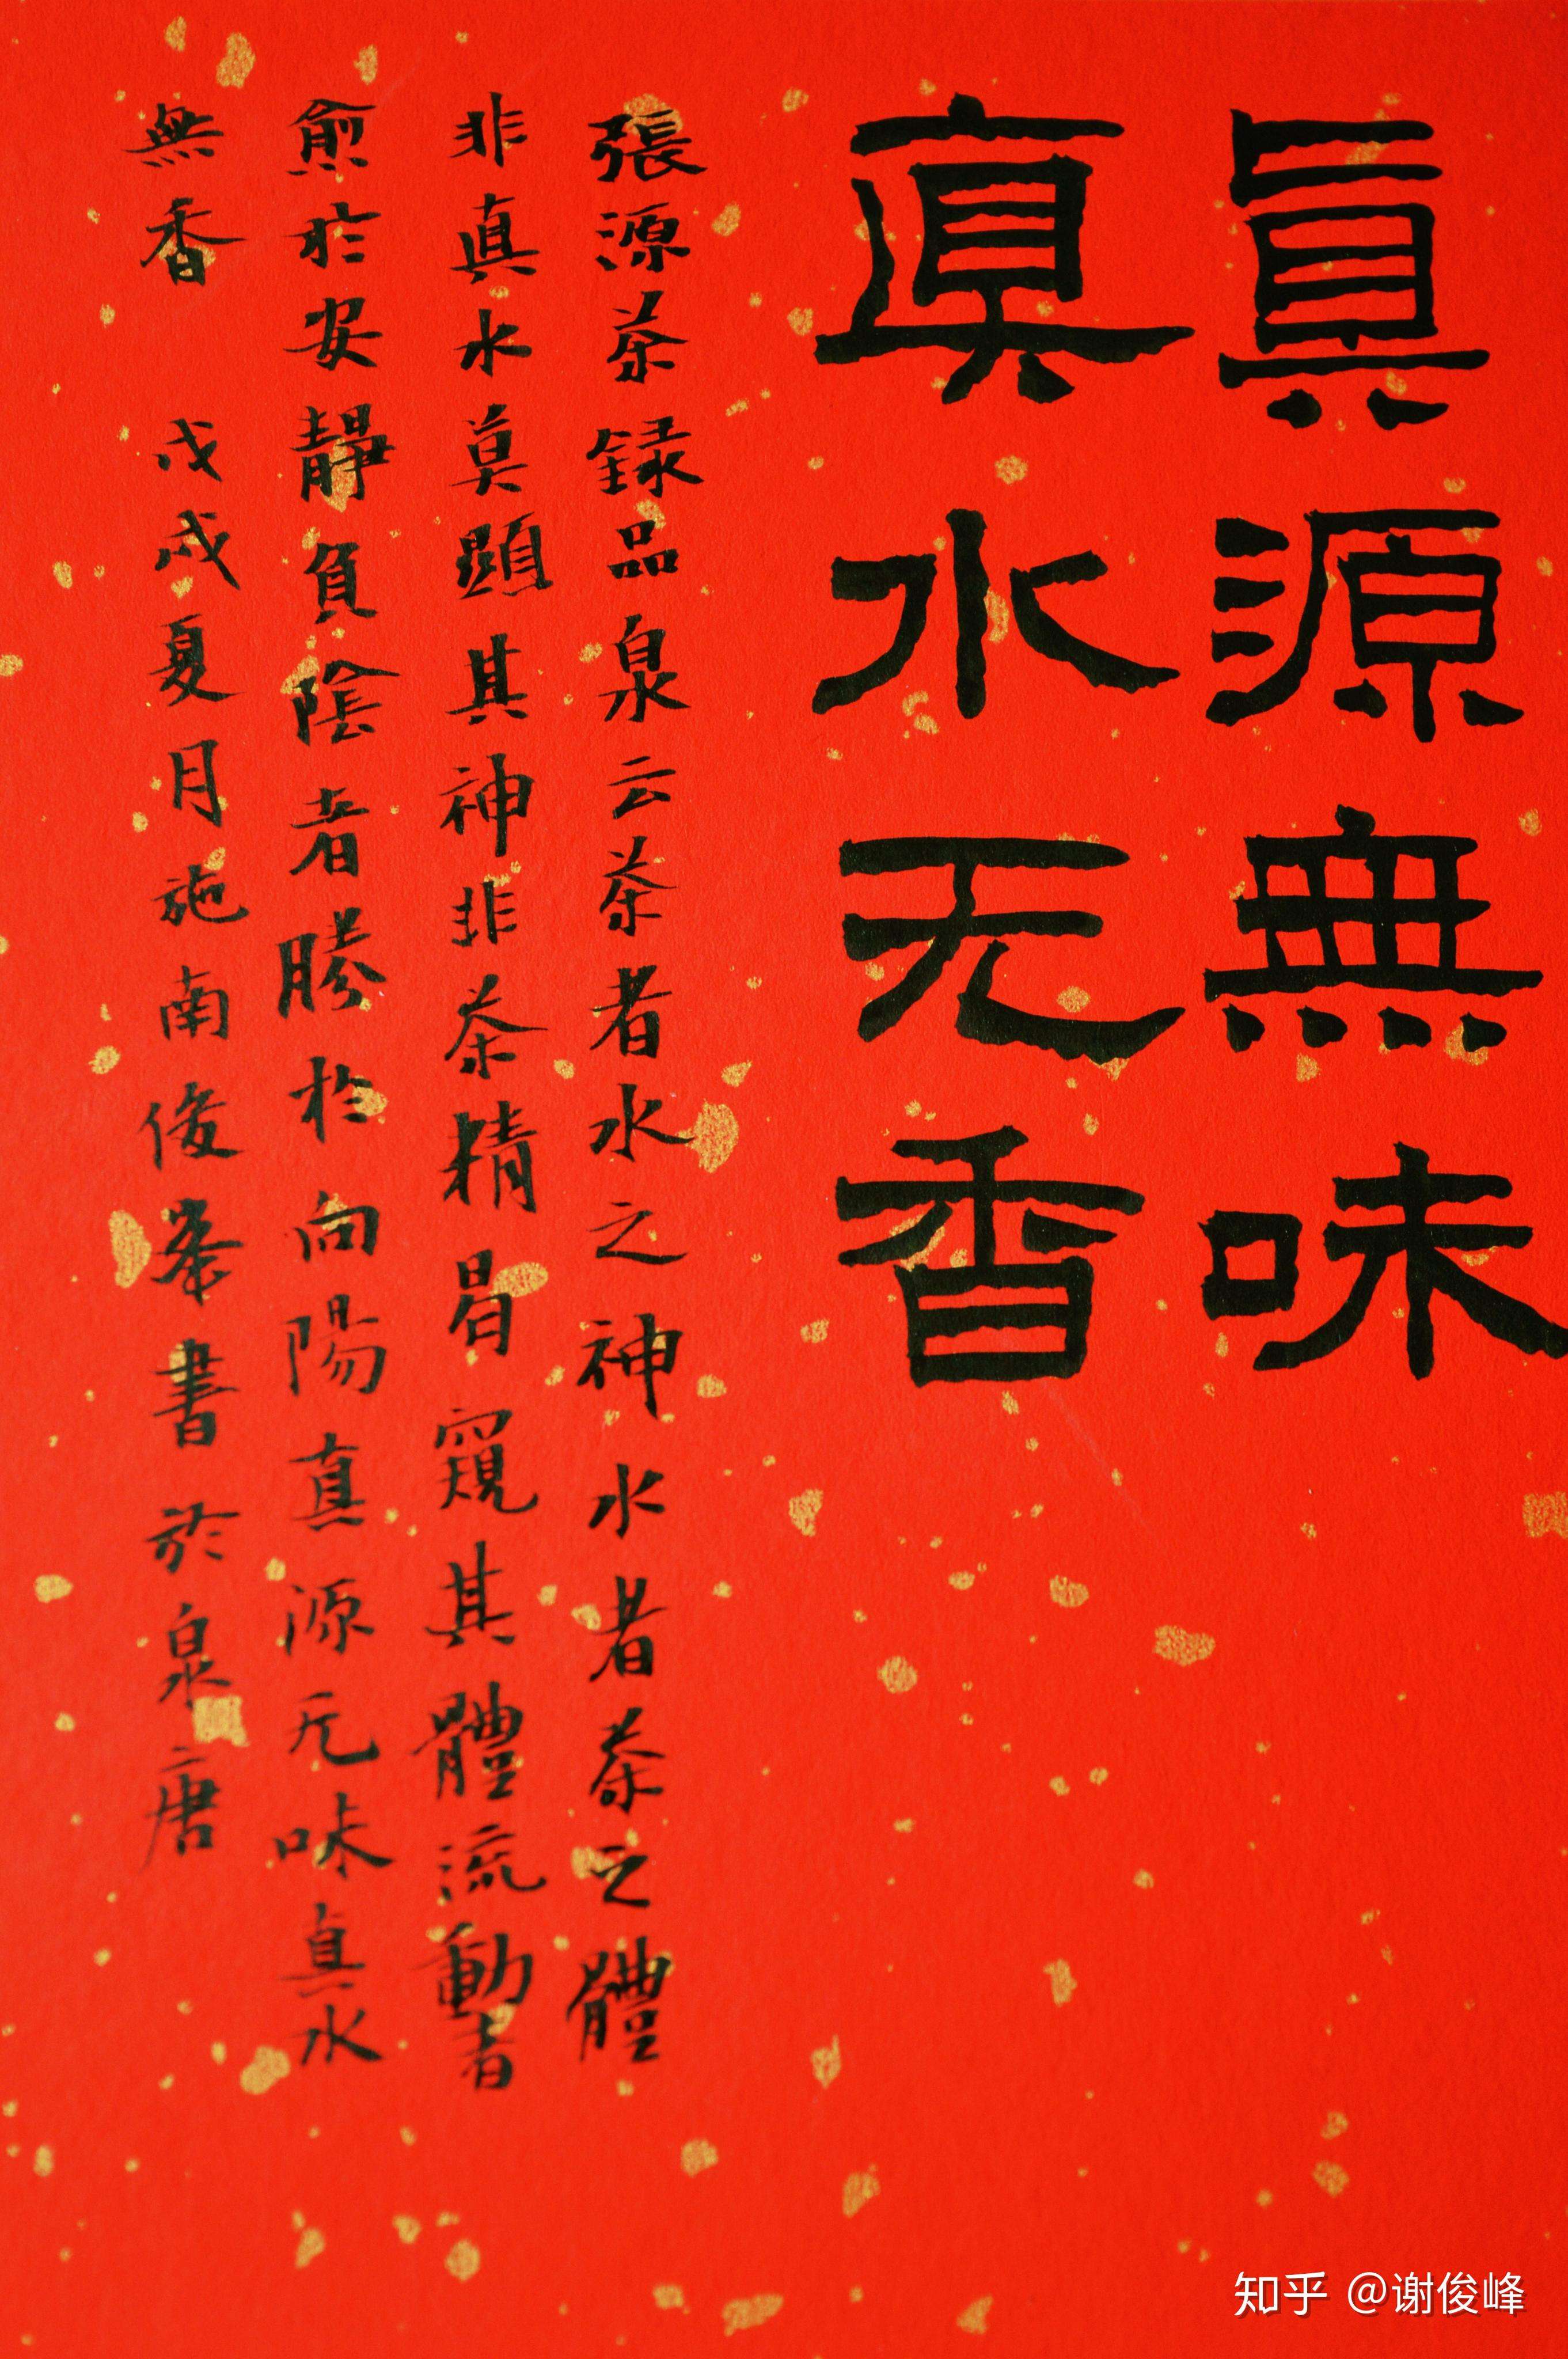 眞源無味
真水无香
張源茶録品泉云茶者水之神水者茶之體
非真水莫顯其神非茶精曷窺其體流動者
愈於安靜負陰者勝於向陽真源无味真水
無香 戊戌夏月施南俊峯書於泉唐
知乎 @谢俊峰